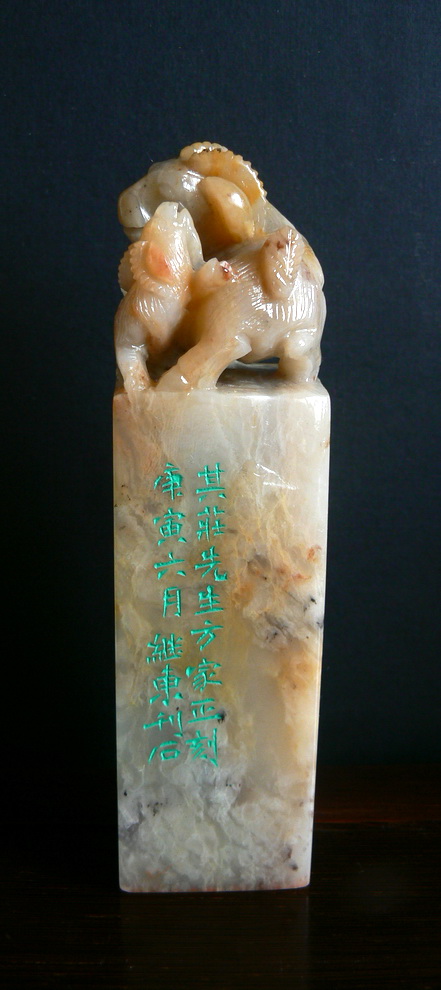 其莊先生方家正刻
庚寅六月 繼東刊石